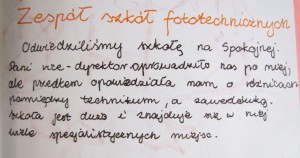 Zespół szkół fototechnicznych
Odwiedziliśmy szkołę na Spokojnej.
Pani vice-dyrektor oprowadziła nas po niej,
ale przedtem opowiedziała nam o różnicach
pomiędzy technikum, a zawodówką.
Szkoła jest duża i znajduje się w niej
wiele specjalistycznych miejsc.